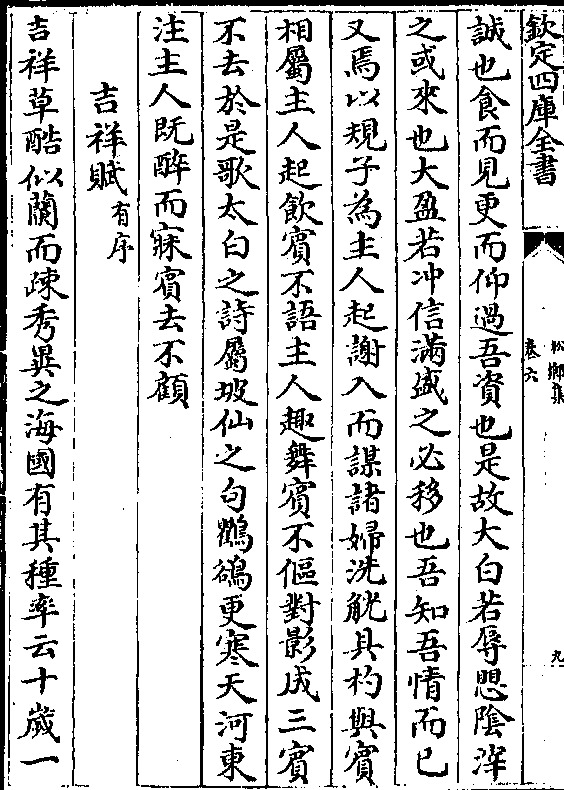 欽定四庫全書
松鄉集
卷六
九
誠也食而見更而仰過吾資也是故大白若辱愳陰滓
之或來也大盈若冲信滿盛之必移也吾知吾情而已
又焉以規子為主人起謝入而謀諸婦洗觥具杓與賓
相屬主人起飲賓不語主人趣舞賓不傴對影成三賓
不去於是歌太白之詩屬坡仙之句鸛鷁更寒天河東
注主人既醉而寐賓去不顧
吉祥賦有序
吉祥草酷似蘭而疎秀異之海國有其種率云十歲一